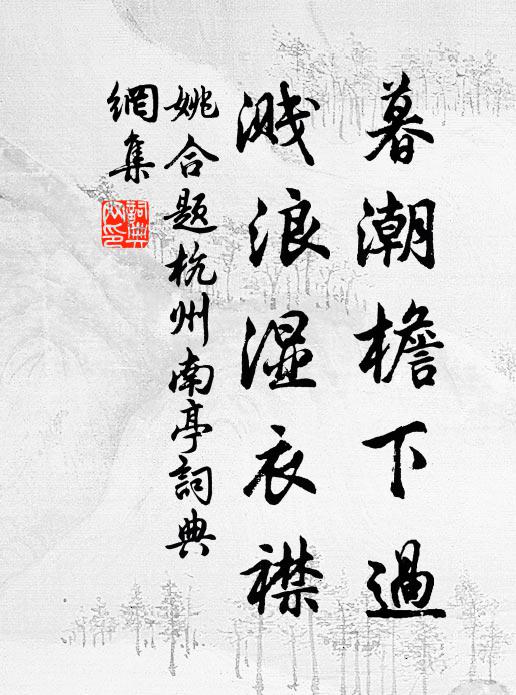 暮潮檐下過
濺浪湿衣襟
姚合題杭州南亭詞典
網集